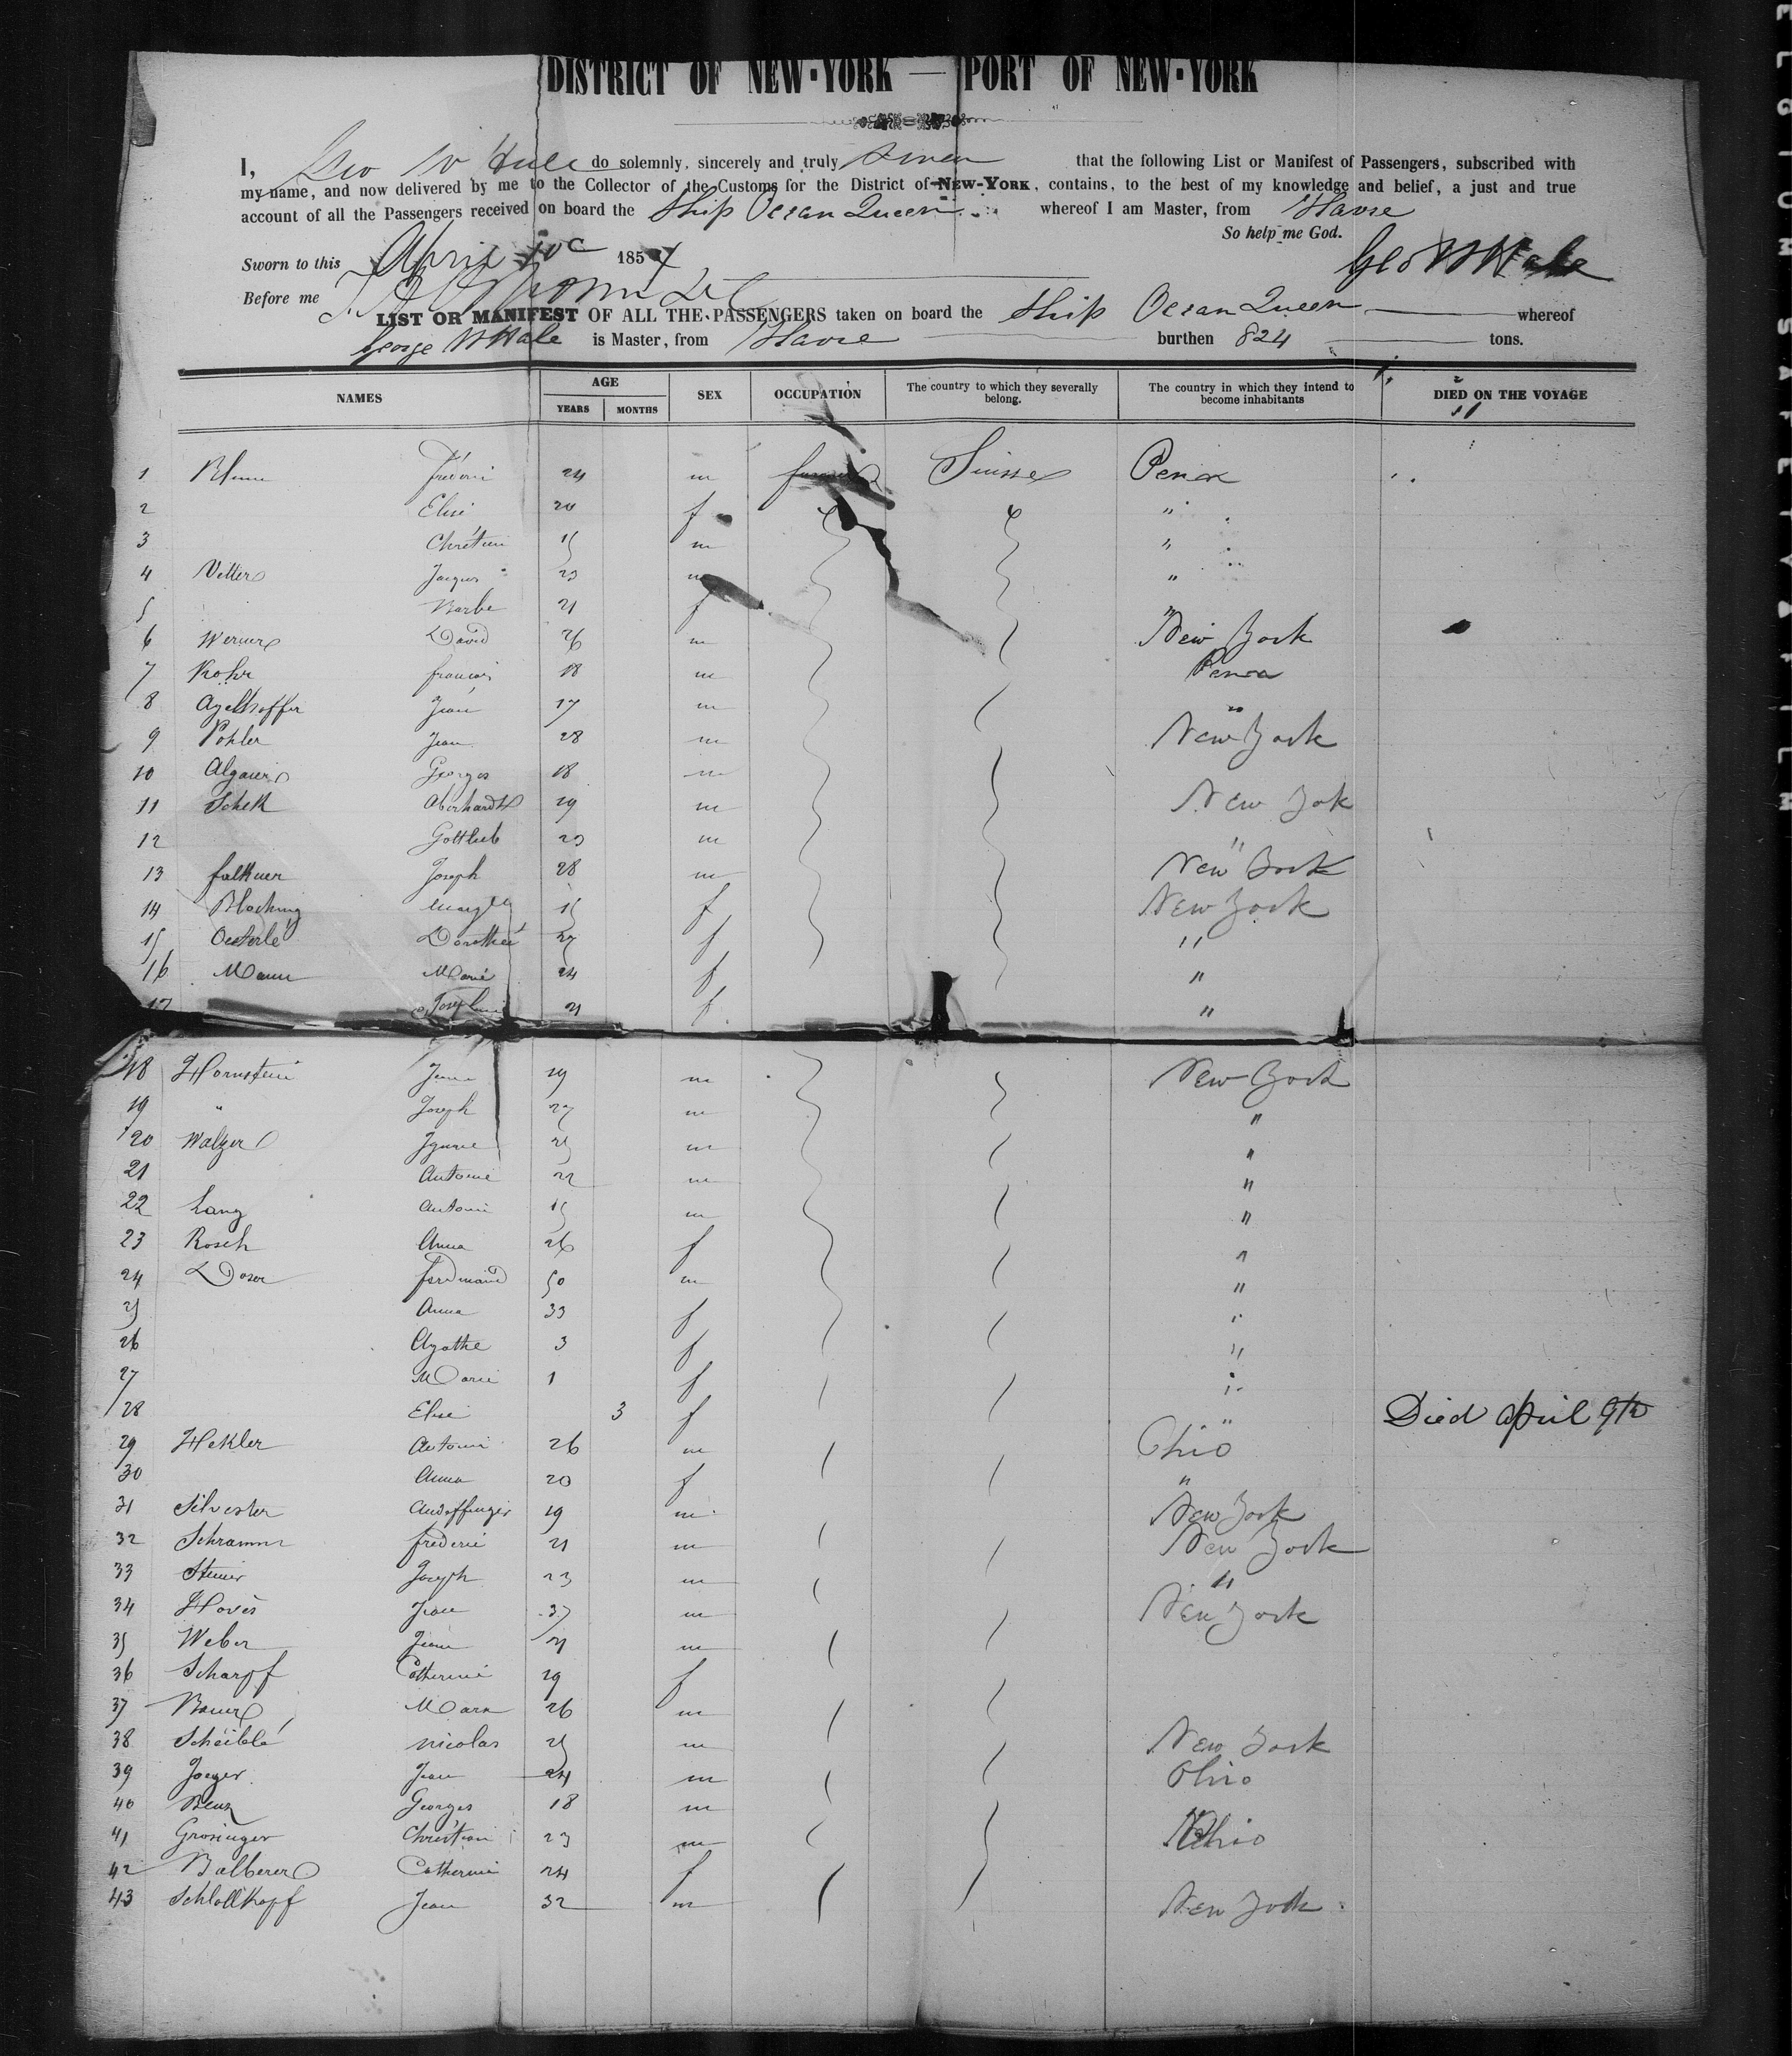 DISTRICT OF NEW-YORK — PORT OF NEW-YORK
I, Geo W Hale do solemnly, sincerely and truly swear that the following List or Manifest of Passengers, subscribed with
my name, and now delivered by me to the Collector of the Customs for the District of NEW-YORK, contains, to the best of my knowledge and belief, a just and true
account of all the Passengers received on board the Ship Ocean Queen whereof I am Master, from Havre
So help me God.
Sworn to this April 185 Geo W Hale
Before me
LIST OR MANIFEST OF ALL THE PASSENGERS taken on board the Ship Ocean Queen whereof
George W Hale is Master, from Havre burthen 824 tons.
NAMES AGE YEARS MONTHS SEX OCCUPATION The country to which they severally belong. The country in which they intend to become inhabitants DIED ON THE VOYAGE
1 Blum 24 m Suisse Penn
2 Elise 20 f "
3 Chrétien 15 m "
4 Vetter Jacques 23 m "
5 Barbe 21 f "
6 Werner David 26 m New York
7 Rohr francois 18 m Penna
8 Jean 17 m "
9 Pohler Jean 28 m New York
10 Algaier Georges 18 m
11 Schelk Aberhardt 29 m New Yok
12 Gottlieb 23 m "
13 falkner Joseph 28 m New York
14 Bloching 15 f New York
15 Oesterlé Dorothée 27 f "
16 Mann Marie 24 f "
17 21 f "
18 Hornstein 19 m New York
19 " Joseph 27 m "
20 Walzer m "
21 Antoine 22 m "
22 Lang Antoine 15 m "
23 Rosch Anna 26 f "
24 Doser ferdinand 50 m "
25 Anna 33 f "
26 Agathe 3 f "
27 Marie 1 f "
28 Elise 3 f " Died April 9th
29 Hekler Antoine 26 m Ohio
30 Anna 20 f "
31 Silvester 19 m New York
32 Schramm frederic 21 m New York
33 Joseph 23 m "
34 Jean 37 m New York
35 Weber Jean 21 m
36 Scharpf Catherine 29 f
37 Bauer Marx 26 m
38 Scheiblé nicolas 25 m New York
39 Jaeger Jean 24 m Ohio
40 Benz Georges 18 m
41 Grosinger Christian 23 m Ohio
42 Balberer Catherine 24 f
43 Schlottkopf Jean 32 m New York